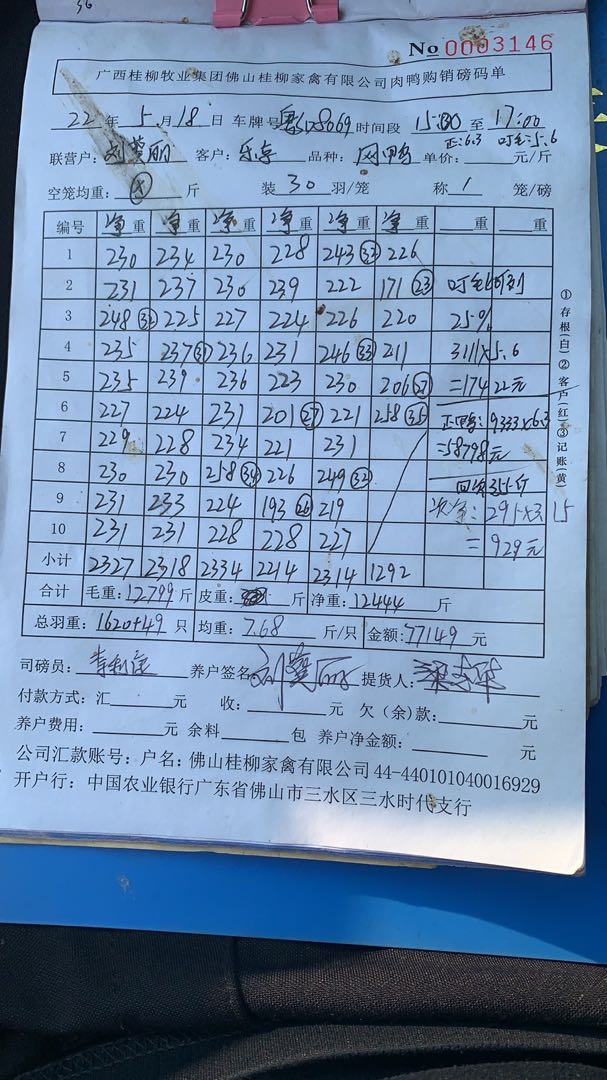 36
No 0003146
广西桂柳牧业集团佛山桂柳家禽有限公司肉鸭购销磅码单
22年5月18日 车牌号 8069 时间段 15:00 至 17:00
正=6.3 叮毛=5.6
联营户: 丽 客户: 乐 品种: 网鸭 单价: 元/斤
空笼均重: 斤 装 30 羽/笼 称 1 笼/磅
编号 净重 净重 净重 净重 净重 净重 重 重
1 230 234 230 228 243 33 226
2 231 237 230 239 222 171 23 叮毛
3 248 32 225 227 224 226 220 25%
4 235 237 31 236 231 246 33 211 3111×5.6
5 235 239 236 223 230 206 27 =17422元
6 227 224 231 201 27 221 258 35 正 : 9333×6.3
7 229 228 234 221 231 =58798元
8 230 230 258 34 226 249 32 回 355斤
9 231 233 224 193 26 219 次 : 295×3.15
10 231 231 228 228 227 =929元
小计 2327 2318 2334 2214 2314 1292
合计 毛重: 12799 斤 皮重: 斤 净重: 12444 斤
总羽重: 1620+49 只 均重: 7.68 斤/只 金额: 77149 元
①存根(白)②客户(红)③记账(黄
司磅员: 李 养户签名: 刘 丽 提货人: 梁
付款方式: 汇 元 收: 元 欠(余)款: 元
养户费用: 元 余料 包 养户净金额: 元
公司汇款账号: 户名: 佛山桂柳家禽有限公司 44-440101040016929
开户行: 中国农业银行广东省佛山市三水区三水时代支行